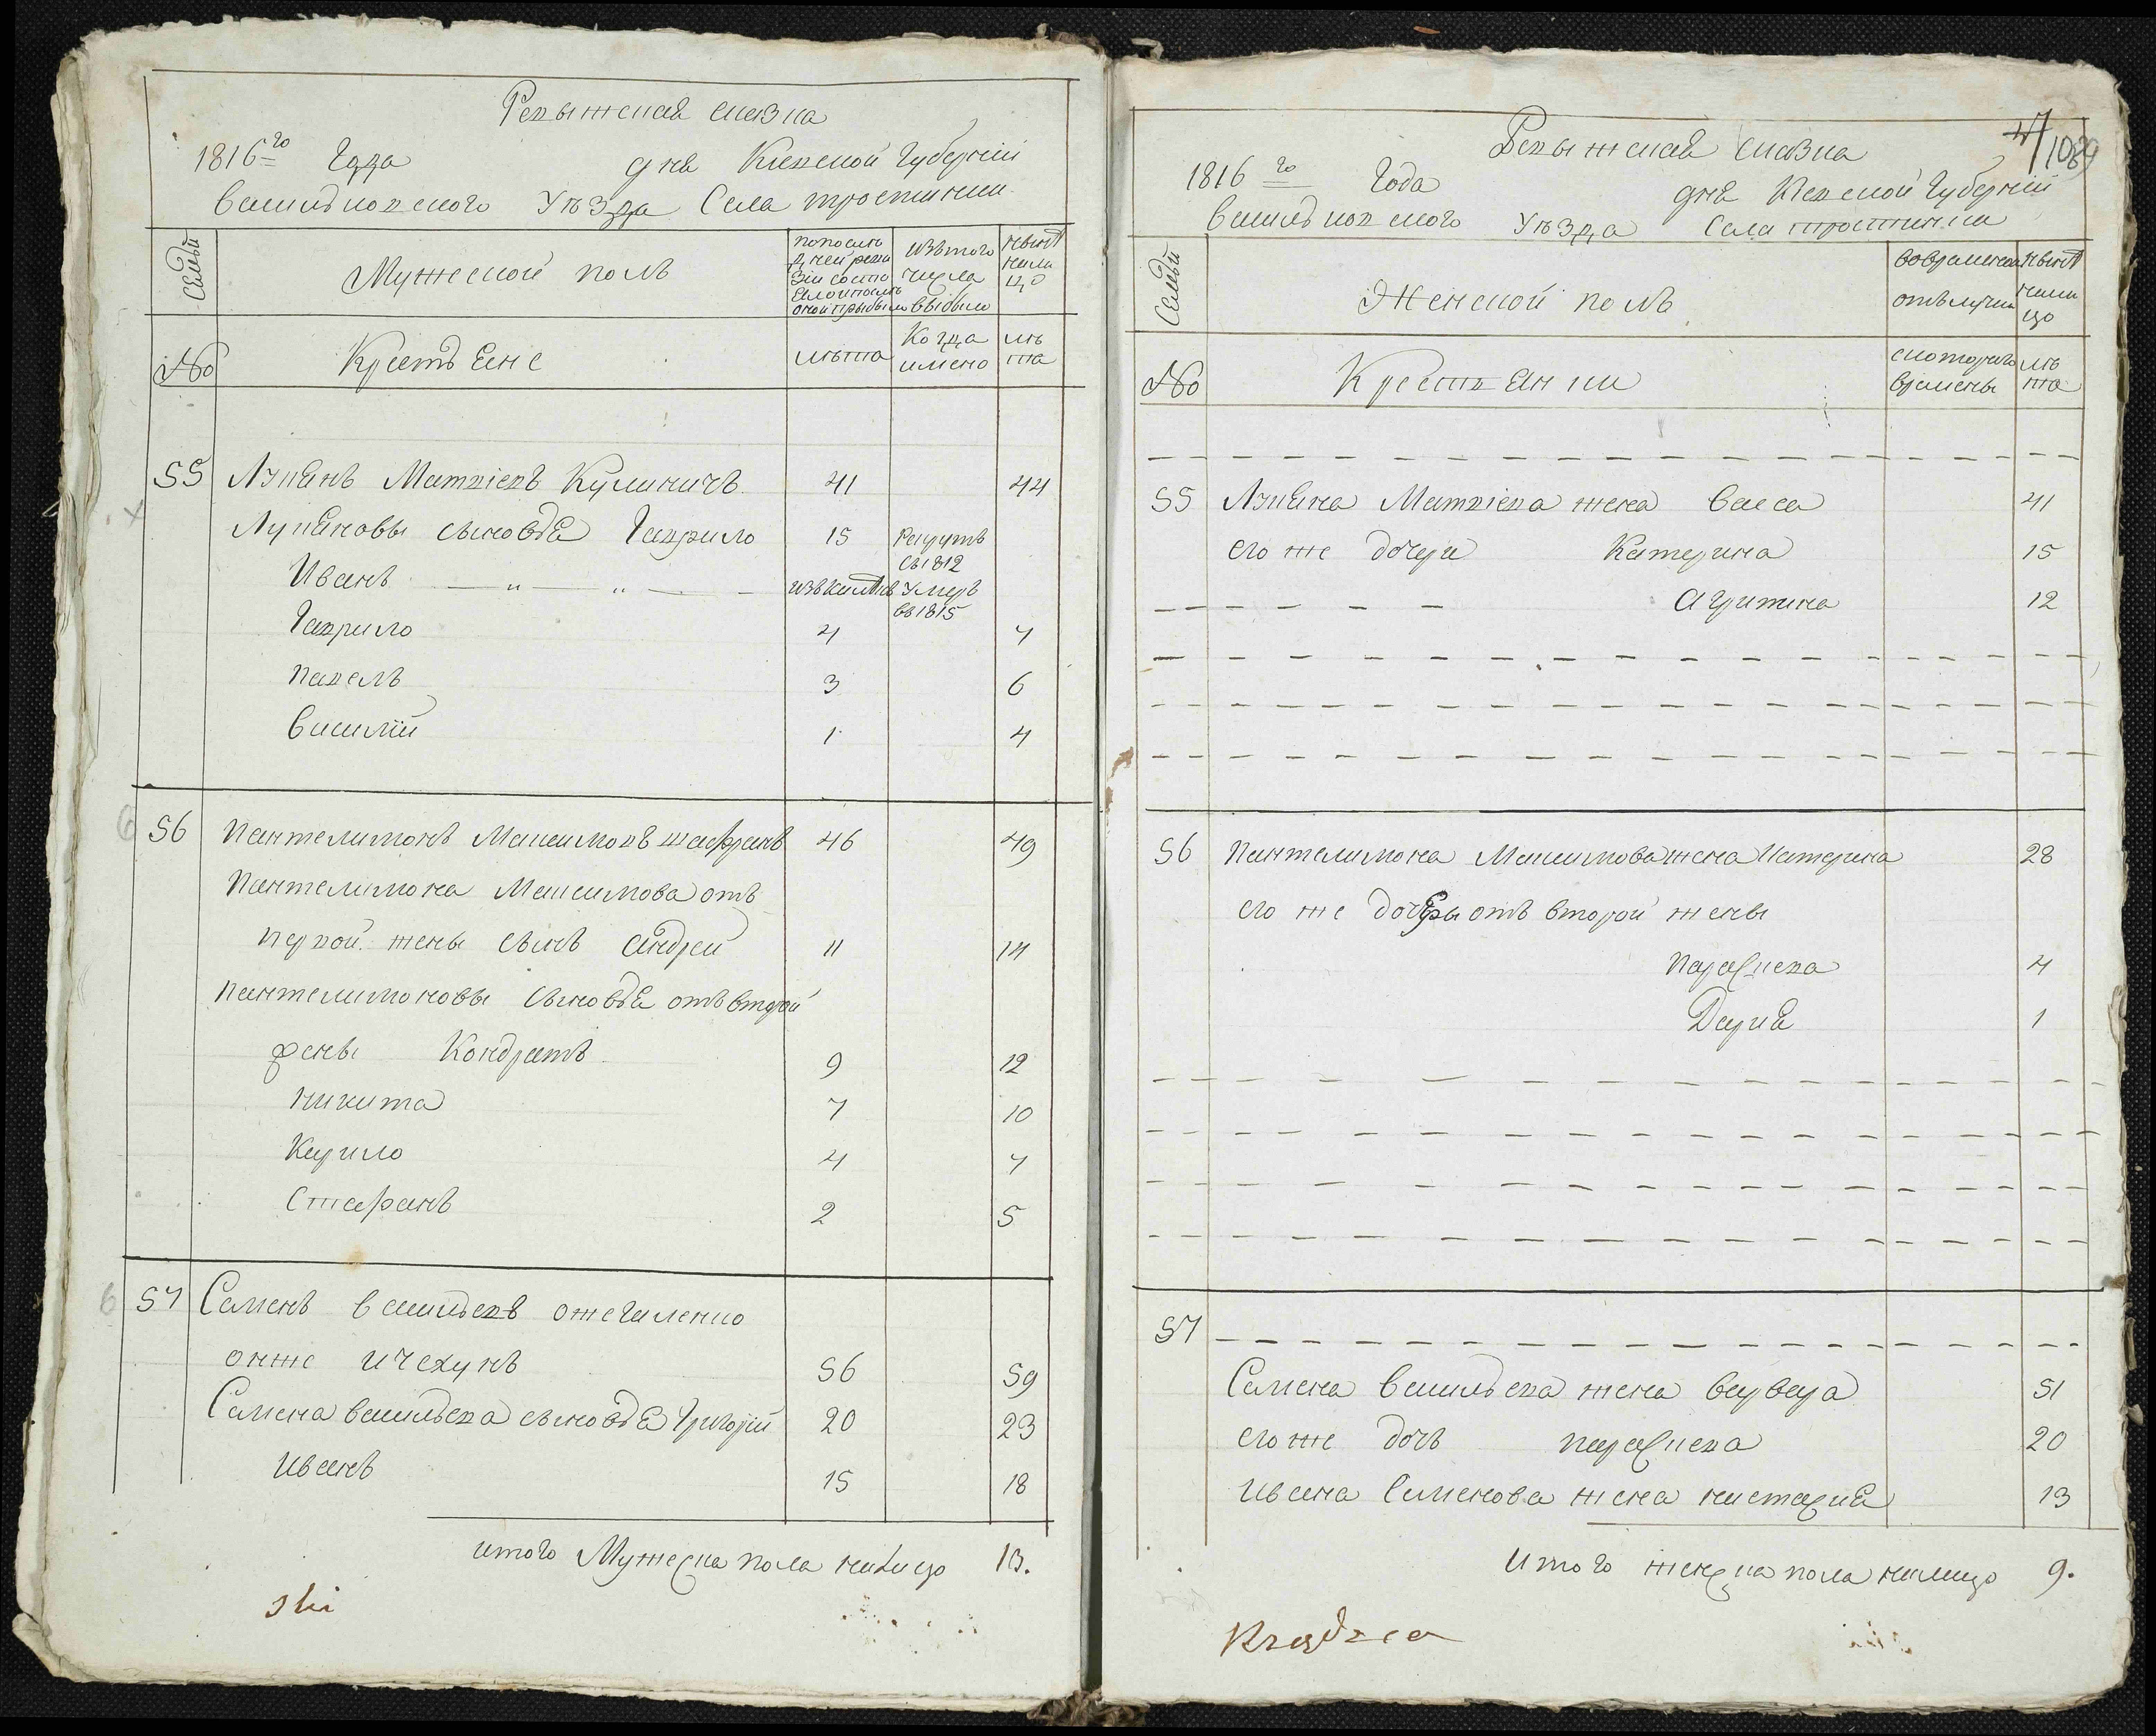 Ревыжская сказка
1816го Года дня Киевской Губернїи
Васильковского Уѣзда Села тростинки
Семьи
Мужеской полъ
по послѣдней ревизїи состояло и послѣ оной прибыло
изъ того числа выбыло
ныне на лицо
№
Крестьяне
лѣта
Когда имено
лѣта
55 Лукянъ Матвіевъ Кулиничъ 41 44
Лукяновы сыновья Гаврило 15 Рекрутъ съ 1812
Иванъ Умеръ въ 1815
Гаврило 4 7
Павелъ 3 6
василїй 1 4
56 Пантелимонъ Максимовъ шафранъ 46 49
Пантелимона Максимова отъ
первой жены сынъ андрей 11 14
Пантелимоновы сыновья отъ второй
жены Кондратъ 9 12
никита 7 10
Кирило 4 7
Стефанъ 2 5
57 Семенъ васильевъ
онже и чехунъ 56 59
Семена васильева сыновья Григорїй 20 23
Иванъ 15 18
итого Мужеска пола налицо 13.
ski
1089
Ревыжская сказка
1816го Года дня Киевской Губернїи
васильковского Уѣзда Села тростинки
Семьи
Женской полъ
во временной отлучки
ныне налицо
№
Крестьянки
с которого времены
лѣта
55 Лукяна Матвіева жена васса 41
его же дочери Катерина 15
агрипина 12
56 Пантелимона Максимова жена Катерина 28
его же дочеры отъ второй жены
параскева 4
Дария 1
57
Семена васильева жена варвара 51
его же дочь параскева 20
Ивана Семенова жена настасия 13
Итого женска пола налицо 9.